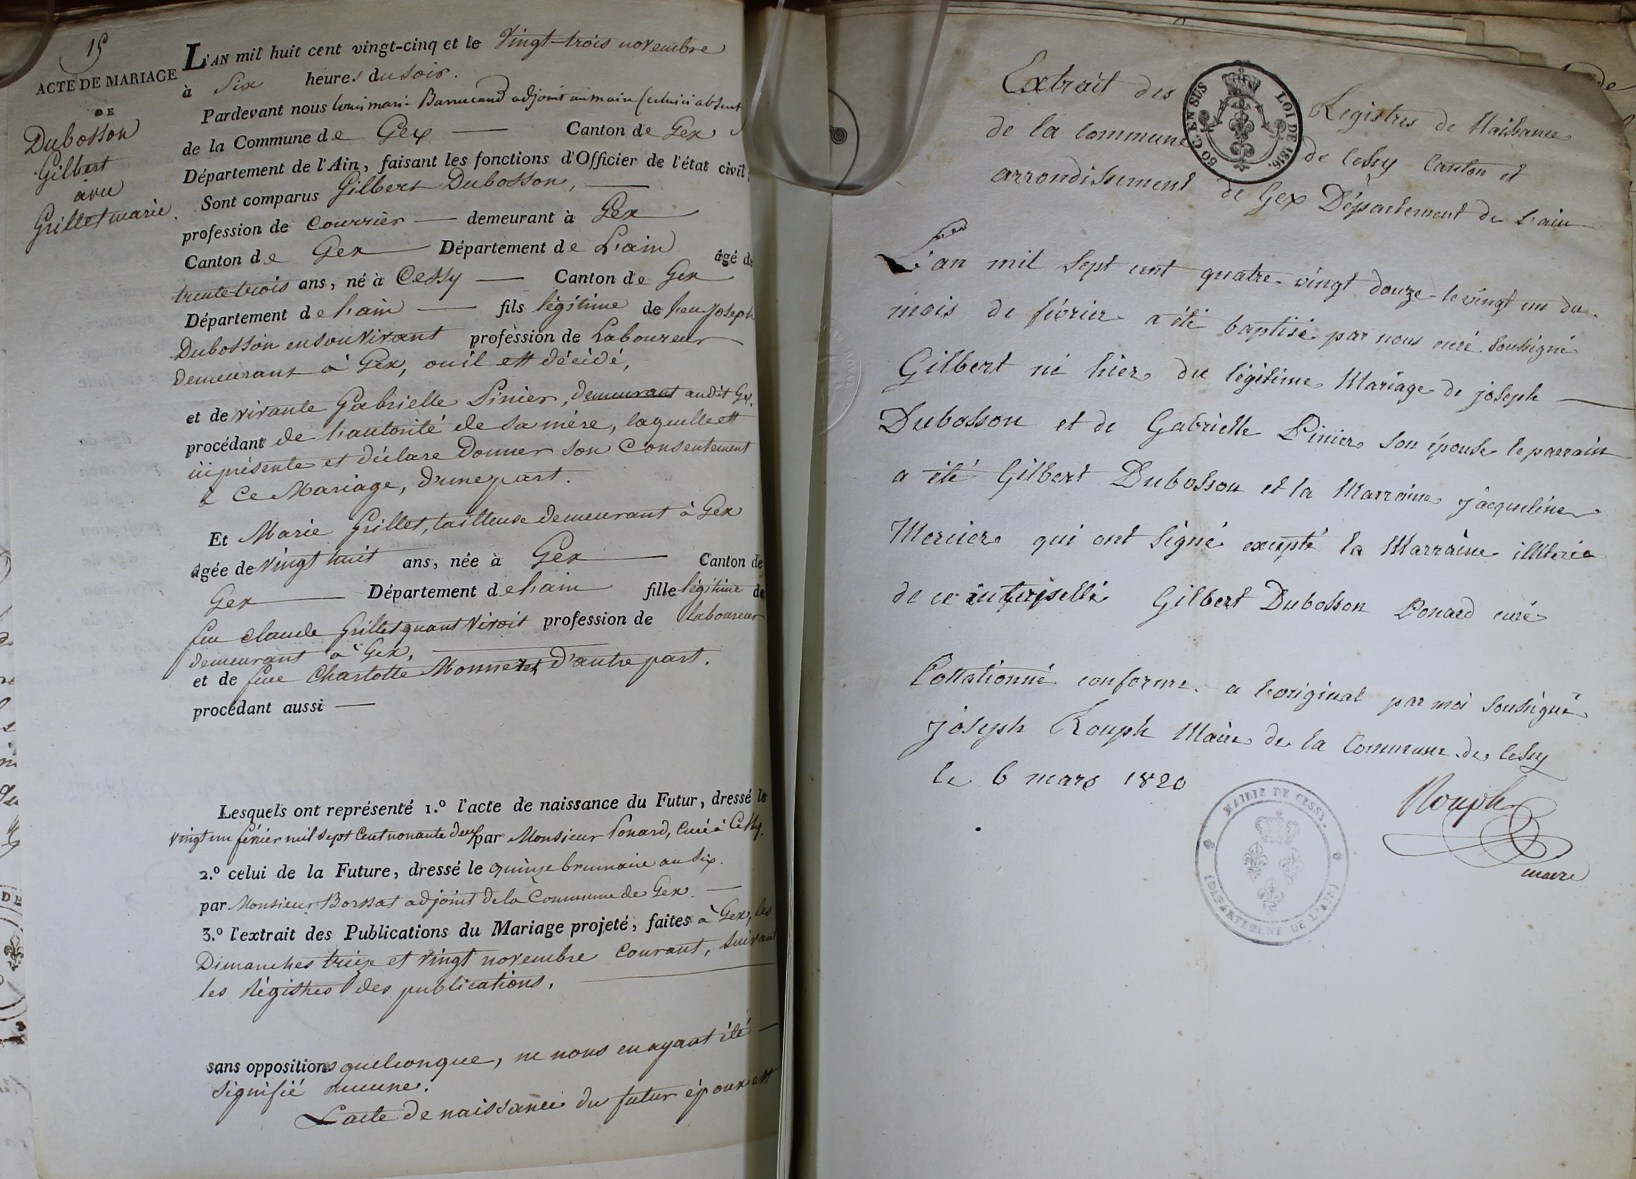 15
ACTE DE MARIAGE
DE
Dubosson
Gilbert
avec
Grillet marie.
L'AN mil huit cent vingt-cinq et le Vingt-trois novembre
à Six heures du soir.
Pardevant nous louis marie Barrucand adjoint au maire (celui ci absent
de la Commune de Gex — Canton de Gex
Département de l'Ain, faisant les fonctions d'Officier de l'état civil,
Sont comparus Gilbert Dubosson, —
profession de Courrier — demeurant à Gex
Canton de Gex — Département de L'ain âgé de
trente trois ans, né à Cessy — Canton de Gex
Département de l'ain — fils légitime de feu Joseph
Dubosson en son vivant profession de Laboureur
demeurant à Gex, où il est décédé,
et de vivante Gabrielle Pinier, demeurant audit Gex.
procédant de l'autorité de sa mère, laquelle est
ici présente et déclare Donner son Consentement
à Ce Mariage, d'une part.
Et Marie Grillet, tailleuse demeurant à Gex
âgée de Vingt huit ans, née à Gex — Canton de
Gex — Département de l'ain fille légitime de
feu Claude Grillet quant vivoit profession de laboureur
demeurant à Gex,
et de feue Charlotte Monnet d'autre part.
procédant aussi —
Lesquels ont représenté 1.º l'acte de naissance du Futur, dressé le
vingt un février mil sept cent nonante deux par Monsieur Ponard, Curé à Cessy.
2.º celui de la Future, dressé le quinze brumaire an Six.
par Monsieur Borssat adjoint de la Commune de Gex. —
3.º l'extrait des Publications du Mariage projeté, faites à Gex, les
Dimanches treize et vingt novembre courant, suivant
les Régistres des publications.
sans oppositions quelconque, ne nous en ayant été —
signifié aucune.
L'acte de naissance du futur époux est
Extrait des Registres de Naissance
de la Commune de Cessy Canton et
arrondissement de Gex Département de l'ain
50 C. EN SUS
LOI DE 1816.
L'an mil sept cent quatre vingt douze le vingt un du
mois de février a été baptisé par nous curé soussigné
Gilbert né hier du légitime Mariage de joseph —
Dubosson et de Gabrielle Pinier son épouse le parrain
a été Gilbert Dubosson et la Marraine jacqueline
Mercier qui ont signé excepté la Marraine illiterée
de ce interpellée Gilbert Dubosson Ponard curé
Collationné conforme a l'original par moi soussigné
joseph Rouph Maire de la Commune de Cessy
le 6 mars 1820
Rouph
maire
MAIRIE DE CESSY
(DEPARTEMENT DE L'AIN)